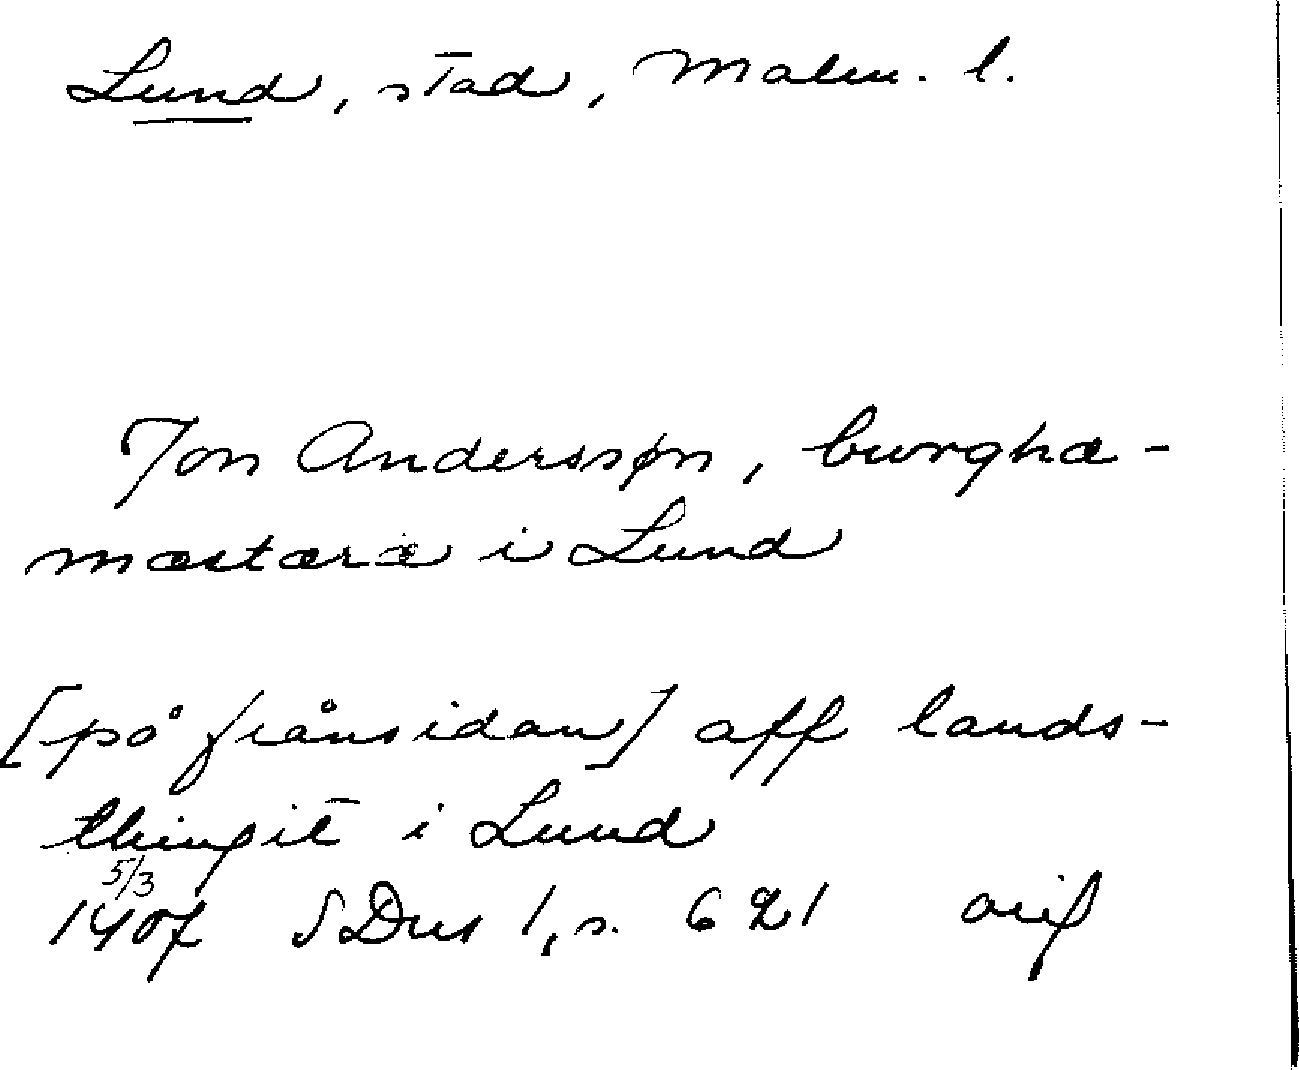 Lund, stad, Malm. l.
Jon Anderssøn, burghæ-
mæstæræ i Lund
[på frånsidan] aff lands-
thingit i Lund
5/3
1407 SDns 1, s. 621 orig